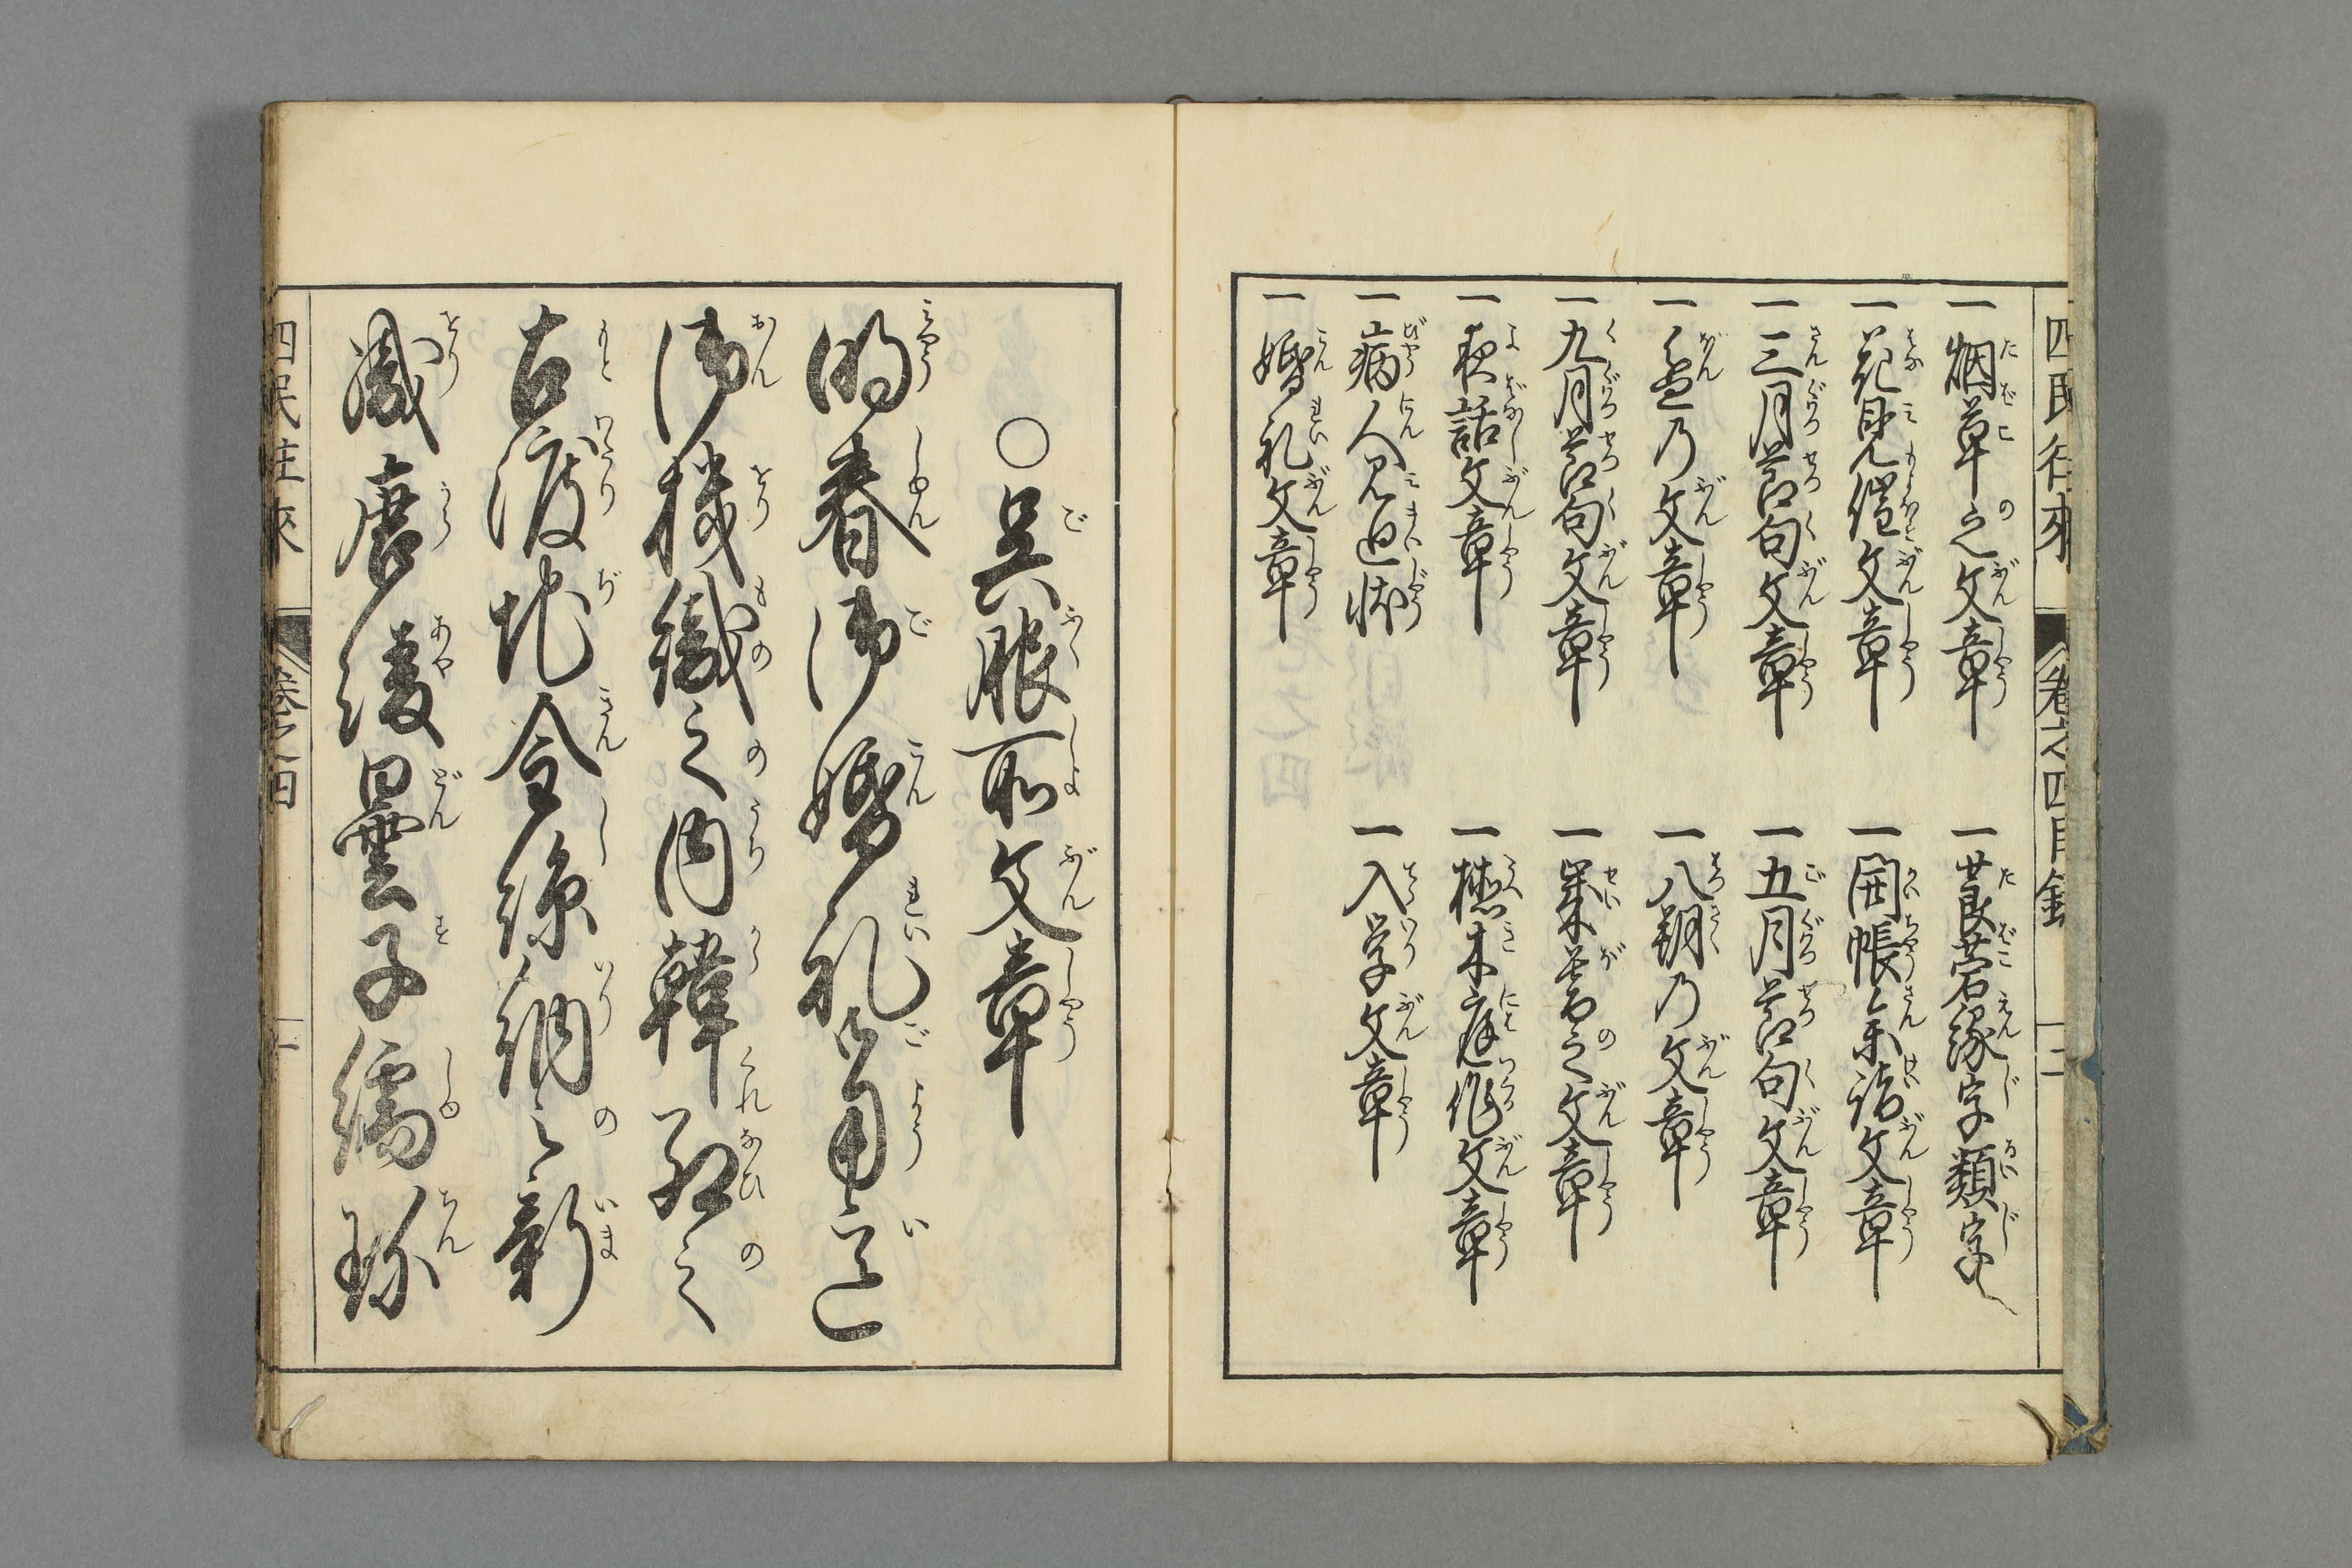 四民往来 巻之四目録 二
一烟草之文章
一莨菪縁字類字
一花見催文章
一開帳参詣文章
一三月節句文章
一五月節句文章
一盆乃文章
一八朔乃文章
一九月節句文章
一歳暮之文章
一夜話文章
一植木庭作文章
一病人見廻状
一入学文章
一婚礼文章
○呉服所文章
明春御婚礼御用意
御機織之内韓紅之
古渡地金線納之新
織唐綾曇子繻珍
四民往来 巻之四 一